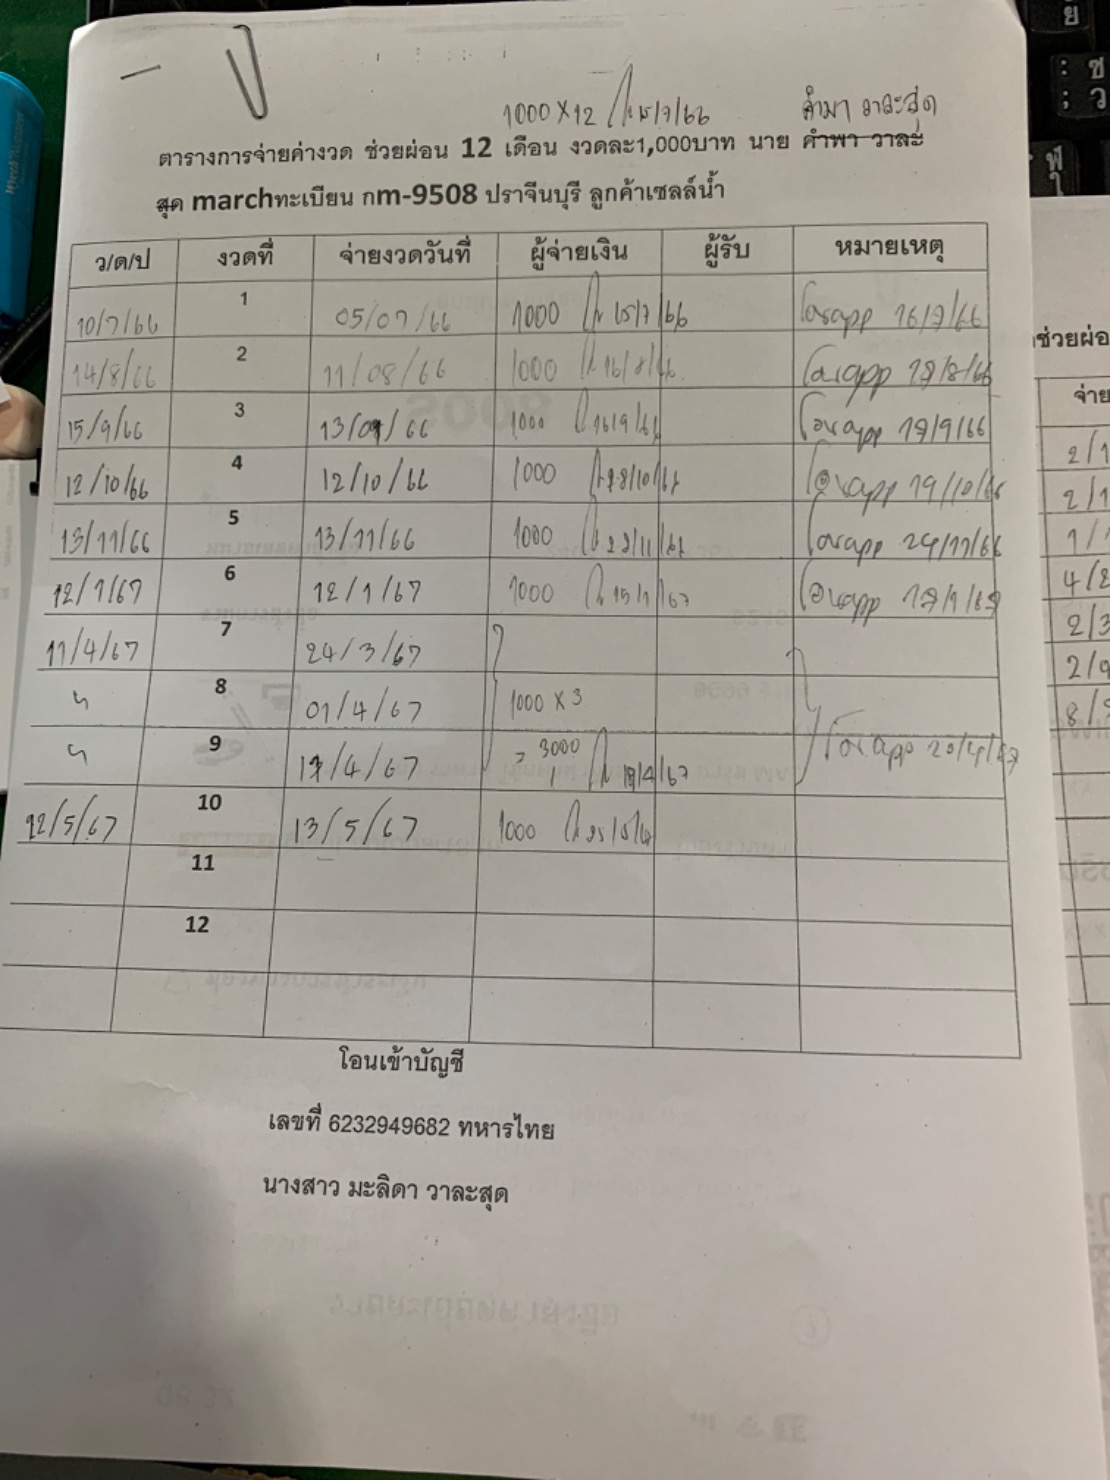 1000 x 12 15/7/66 คำมา วาละสุด
ตารางการจ่ายค่างวด ช่วยผ่อน 12 เดือน งวดละ1,000บาท นาย คำพา วาละ
สุด marchทะเบียน กm-9508 ปราจีนบุรี ลูกค้าเซลล์น้ำ
ว/ด/ป งวดที่ จ่ายงวดวันที่ ผู้จ่ายเงิน ผู้รับ หมายเหตุ
10/7/66 1 05/07/66 1000 15/7/66 โอนapp 16/7/66
14/8/66 2 11/08/66 1000 16/8/66 โอนapp 17/8/66
15/9/66 3 13/09/66 1000 16/9/66 โอนapp 17/9/66
12/10/66 4 12/10/66 1000 โอนapp 19/10/66
13/11/66 5 13/11/66 1000 22/11/66 โอนapp 24/11/66
12/1/67 6 12/1/67 1000 15/1/67 โอนapp 17/1/67
11/4/67 7 24/3/67
ๆ 8 01/4/67 1000 x 3
ๆ 9 17/4/67 = 3000 โอนapp 20/4/67
12/5/67 10 13/5/67 1000
11
12
โอนเข้าบัญชี
เลขที่ 6232949682 ทหารไทย
นางสาว มะลิดา วาละสุด
ช่วยผ่อ
จ่าย